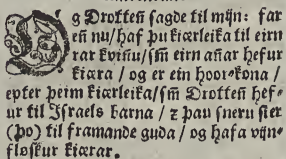 OG Drotten sagde til mijn: far
en nu / haf þu kiærleika til eirn
rar kvinu / sm eirn añar hefur
kiæra / og er ein hoor-kona /
epter þeim kiærleika / sm Drotten hef-
ur til Israels barna / z þau sneru sier
(þo) til framande guda / og hafa vijn-
fløskur kiærar.